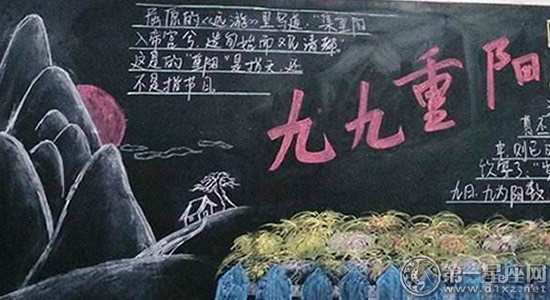 屈原的《远游》里写道："集重阳
入帝宫兮，造旬始而观清都。
这里的"重阳"是指天，还
不是指节日。
九九重阳
九日，九为阳数
第一星座网
www.d1xz.net